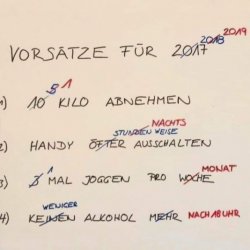 VORSÄTZE FÜR 2017 2018 2019
1) 10 5 1 KILO ABNEHMEN
2) HANDY ÖFTER STUNDENWEISE NACHTS AUSSCHALTEN
3) 3 1 MAL JOGGEN PRO WOCHE MONAT
4) KEINEN WENIGER ALKOHOL MEHR NACH 18 UHR